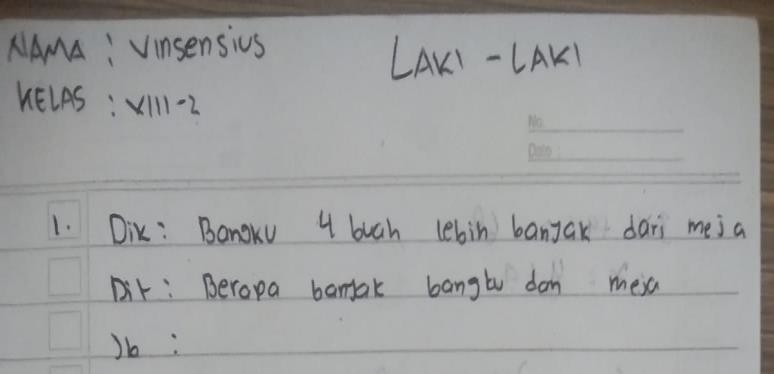 NAMA : Vinsensius
LAKI - LAKI
KELAS : VIII-2
No.
Date
1. Dik : Bangku 4 buah lebih banyak dari meja
Dit : Berapa banyak bangku dan meja
Jb :